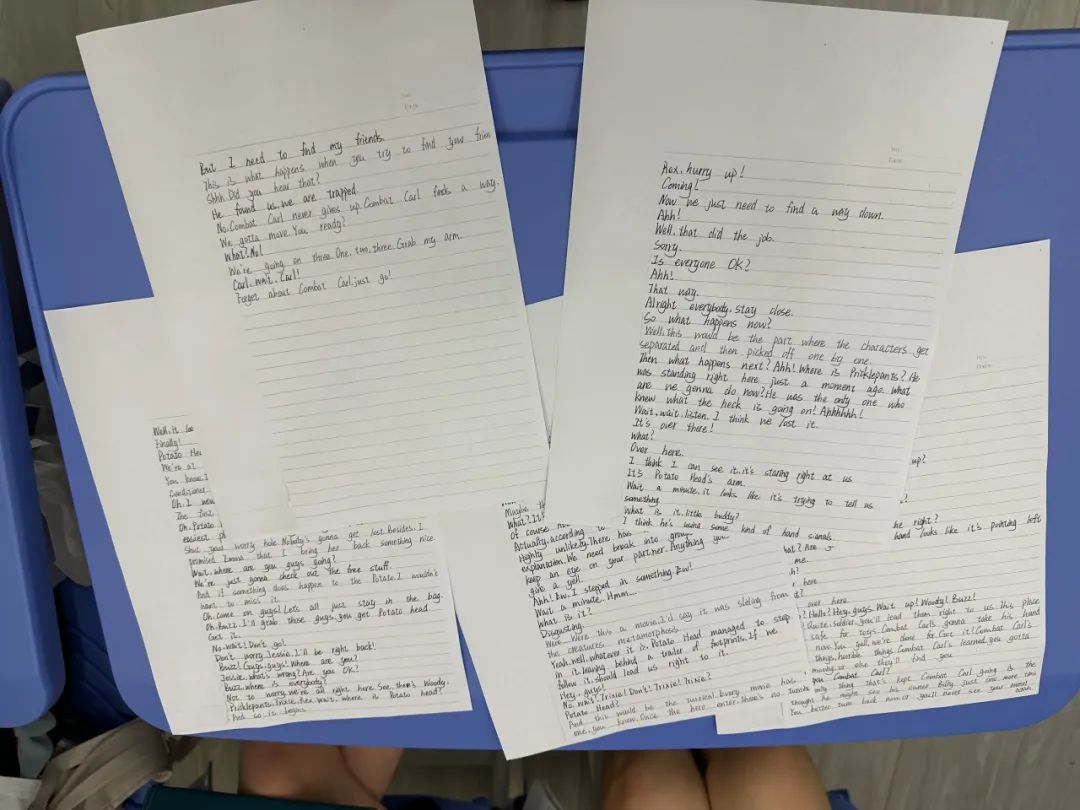 But I need to find my friends.
This is what happens when you try to find your frien
Shhh. Did you hear that?
He found us, we are trapped.
No, Combat Carl never gives up. Combat Carl finds a way.
We gotta move. You ready?
What? No!
We're going on three. One, two, three. Grab my arm.
Carl, wait. Carl!
Forget about Combat Carl, just go!
Rex, hurry up!
Coming!
Now we just need to find a way down.
Ahh!
Well, that did the job.
Sorry.
Is everyone OK?
Ahh!
That way.
Alright everybody, stay close.
So what happens now?
Well, this would be the part where the characters get
separated and then picked off one by one.
Then what happens next? Ahh! Where is Pricklepants? He
was standing right here just a moment ago. What
are we gonna do now? He was the only one who
knew what the heck is going on! Ahhhhhh!
Wait, wait, listen. I think we lost it.
It's over there!
What?
Over here.
I think I can see it, it's staring right at us
It's Potato Head's arm.
Wait a minute, it looks like it's trying to tell us
something.
What is it, little buddy?
I think he's using some kind of hand signals.
Well, it
Finally!
Potato He
We're at
You know, I
Conditioner
Oh, I
The first
Oh, Potato
easiest p
Shut your worry hole. Nobody's gonna get lost. Besides, I
promised Emma that I bring her back something nice.
Wait, where are you guys going?
We're just gonna check out the free stuff.
And if something does happen to the Potato, I wouldn't
want to miss it.
Oh, come on guys! Lets all just stay in the bag.
Oh, Buzz. I'll grab those guys, you get Potato Head.
Get it.
No, wait! Don't go!
Don't worry, Jessie, I'll be right back!
Buzz! Guys, guys! Where are you?
Jessie, what's wrong? Are you OK?
Buzz, where is everybody?
Not to worry, we're all right here. See, there's Woody,
Pricklepants, Trixie, Rex, wait, where is Potato head?
And so it begins.
Maybe
What? It
Of course
Actually, according to
Highly unlikely. There has
explanation. We need break into group
keep an eye on your partner. Anything
give a yell.
Ahh! Ew. I stepped in something. Ew!
Wait a minute. Hmm...
What is it?
Disgusting.
Were this a movie, I'd say it was slelag from
the creatures metamorphosis
Yeah, well, whatever it is, Potato Head managed to step
in it, leaving behind a trailer of footprints. If we
follow it, should lead us right to it.
Hey, guys!
No, wait! Trixie! Don't! Trixie! Trixie?
Potato Head?
And this would be the survival. Every movie has
one, you know. Once the hero enter, there's no
up?
he right?
hand looks like it's pointing left
hat? Are
me.
h?
here
over here.
? Hello? Hey, guys. Wait up! Woody! Buzz!
Quite, soldier, you'll lead them right to us. This place
safe for toys. Combat Carl's gonna take his hand
now. You yell, we're done for. Got it? Combat Carl's
things, horrible things Combat Carl's learned, you gotta
moving, or else they'll find you.
you Combat Carl?
only thing that's kept Combat Carl going is the
thought he might see his owner Billy just one more time
You better turn back now, or you'll never see your owner
again.